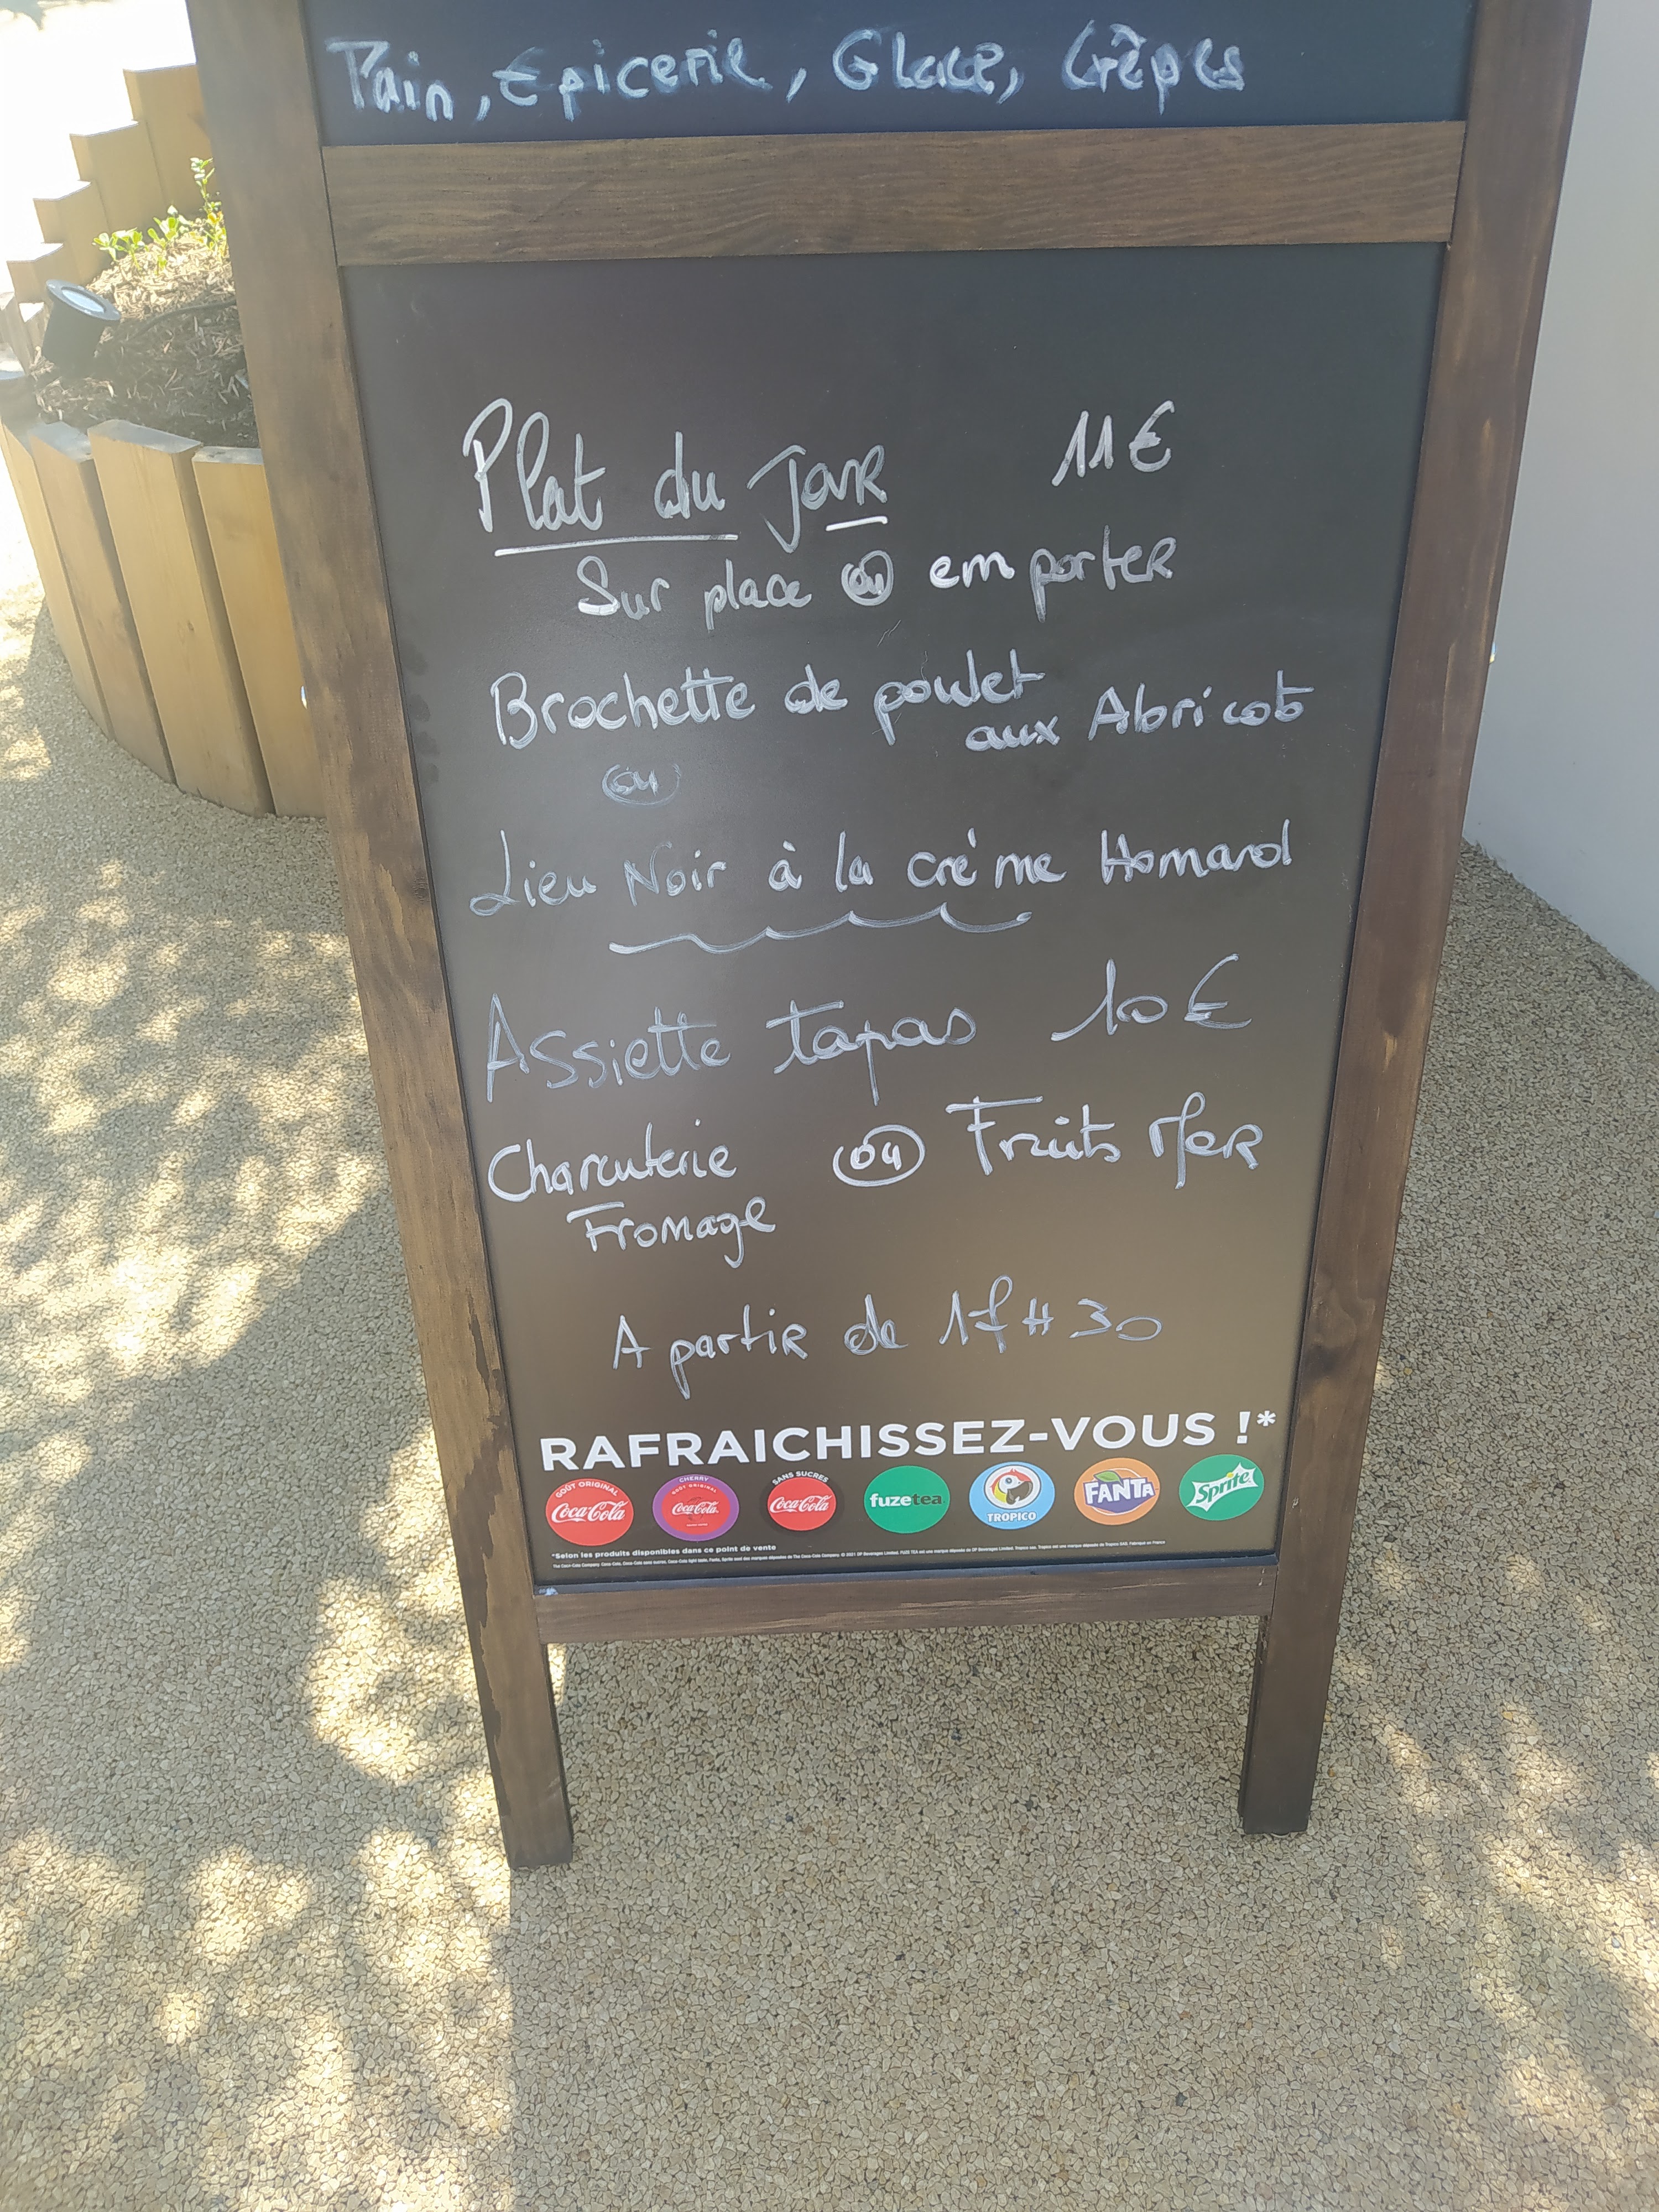 Pain, Epicerie, Glace, Crêpes
Plat du Jour 11€
Sur place ou emporter
Brochette de poulet
aux Abricots
ou
Lieu Noir à la créme Homard
Assiette tapas 10€
Charcuterie ou Fruits Mer
Fromage
A partir de 17H30
RAFRAICHISSEZ-VOUS !*
GOÛT ORIGINAL CHERRY SANS SUCRES
GOÛT ORIGINAL
Coca-Cola Coca-Cola Coca-Cola fuzetea TROPICO FANTA Sprite
*Selon les produits disponibles dans ce point de vente